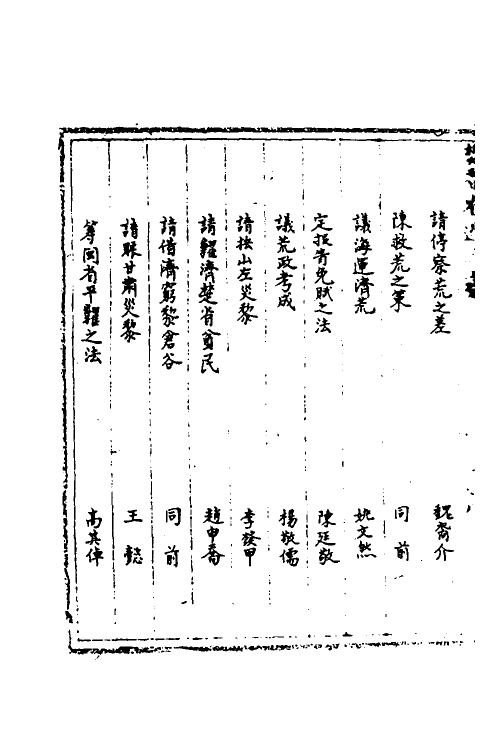 請停察荒之差 魏裔介
陳救荒之策 同前
議海運濟荒 姚文然
定報荒免賦之法 陳廷敬
議荒政考成 楊敬儒
請拯山左災黎 李發甲
請糶濟楚省貧民 趙申喬
請借濟窮黎倉谷 同前
請賑甘肅災黎 王懿
籌閩省平糶之法 高其倬